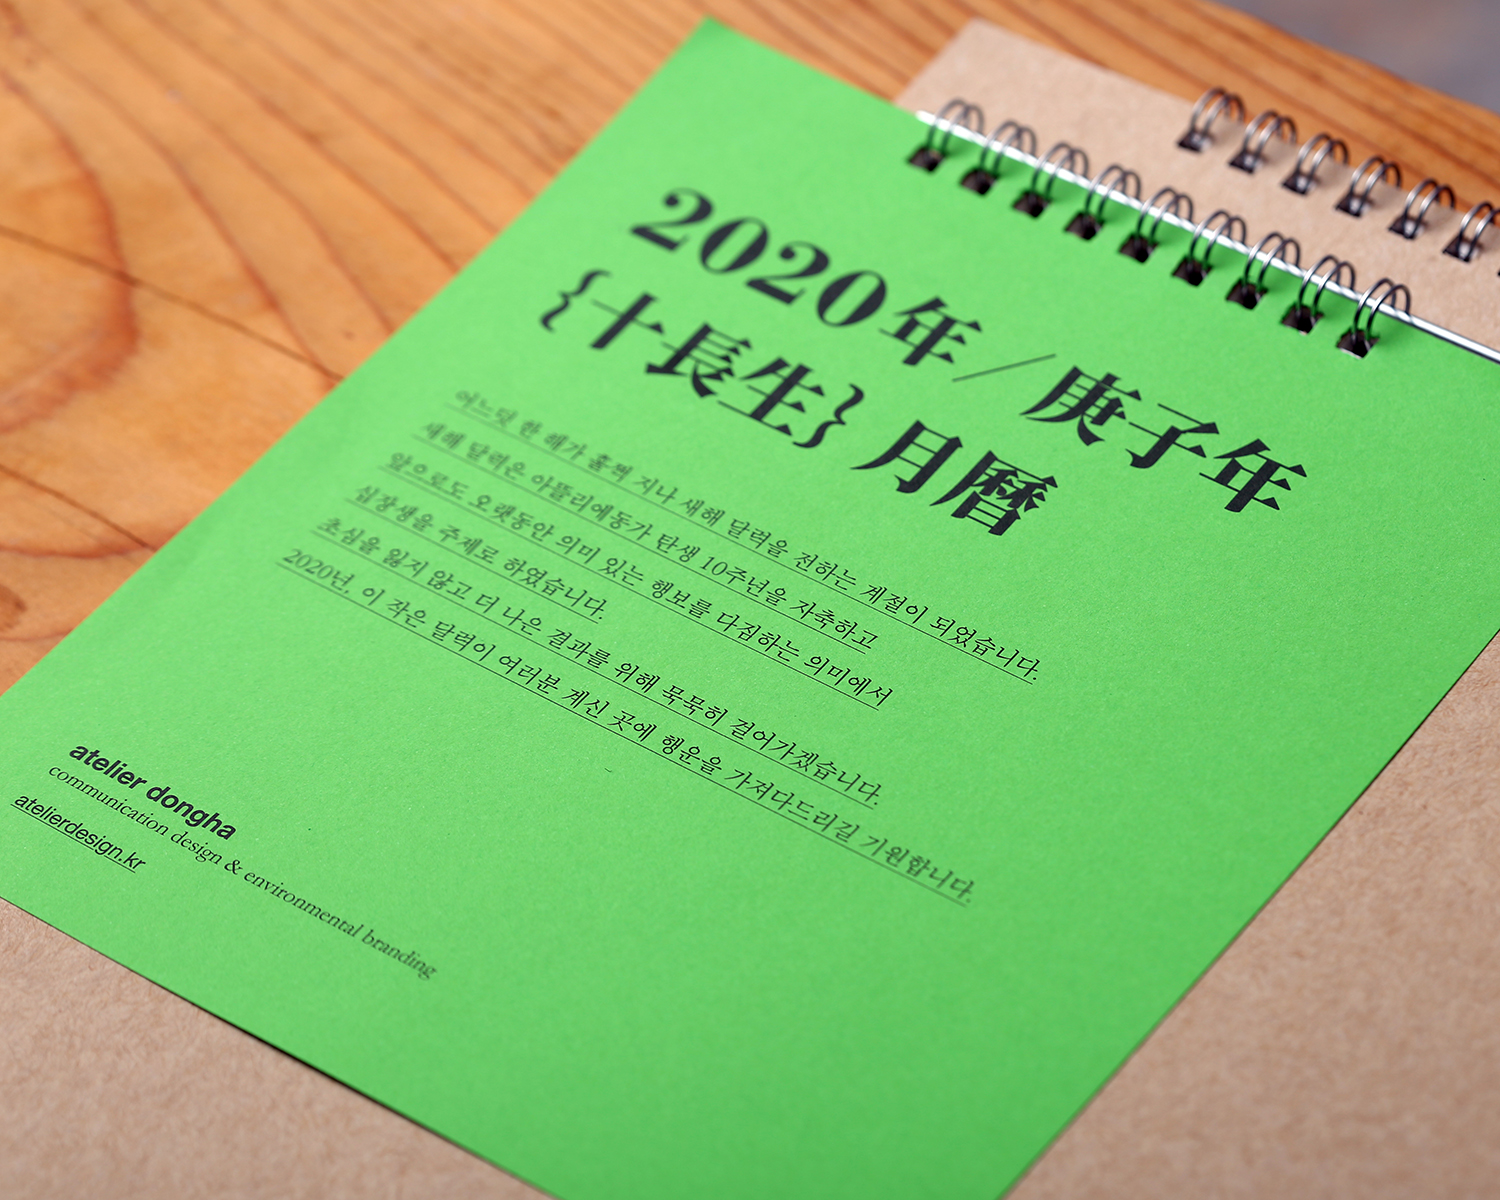 2020年／庚子年
{十長生} 月曆
어느덧 한 해가 훌쩍 지나 새해 달력을 전하는 계절이 되었습니다.
새해 달력은 아뜰리에동가 탄생 10주년을 자축하고
앞으로도 오랫동안 의미 있는 행보를 다짐하는 의미에서
십장생을 주제로 하였습니다.
초심을 잃지 않고 더 나은 결과를 위해 묵묵히 걸어가겠습니다.
2020년, 이 작은 달력이 여러분 계신 곳에 행운을 가져다드리길 기원합니다.
atelier dongha
communication design & environmental branding
atelierdesign.kr